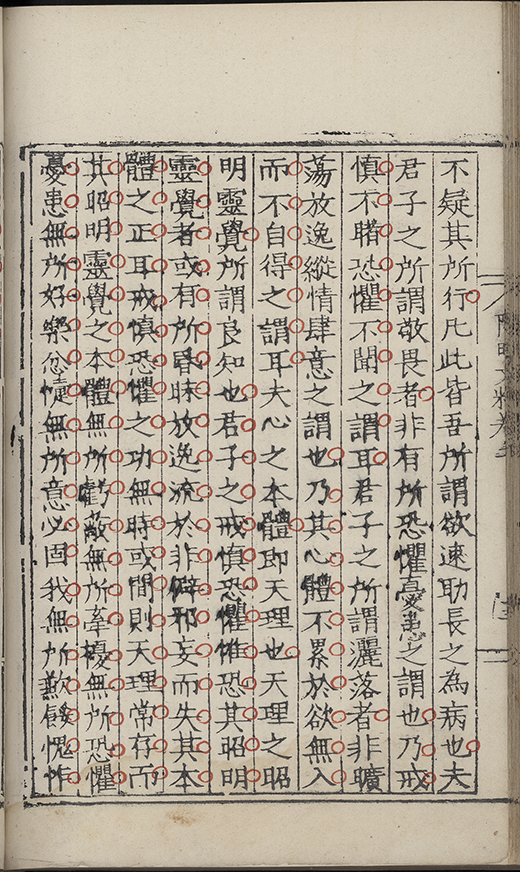 不疑其所行凡此皆吾所謂欲速助長之為病也夫
君子之所謂敬畏者非有所恐懼憂患之謂也乃戒
慎不睹恐懼不聞之謂耳君子之所謂灑落者非曠
蕩放逸縱情肆意之謂也乃其心體不累於欲無入
而不自得之謂耳夫心之本體即天理也天理之昭
明靈覺所謂良知也君子之戒慎恐懼惟恐其昭明
靈覺者或有所昏昧放逸流於非僻邪妄而失其本
體之正耳戒慎恐懼之功無時或間則天理常存而
其昭明靈覺之本體無所虧蔽無所牽擾無所恐懼
憂患無所好樂忿懥無所意必固我無所歉餒愧怍